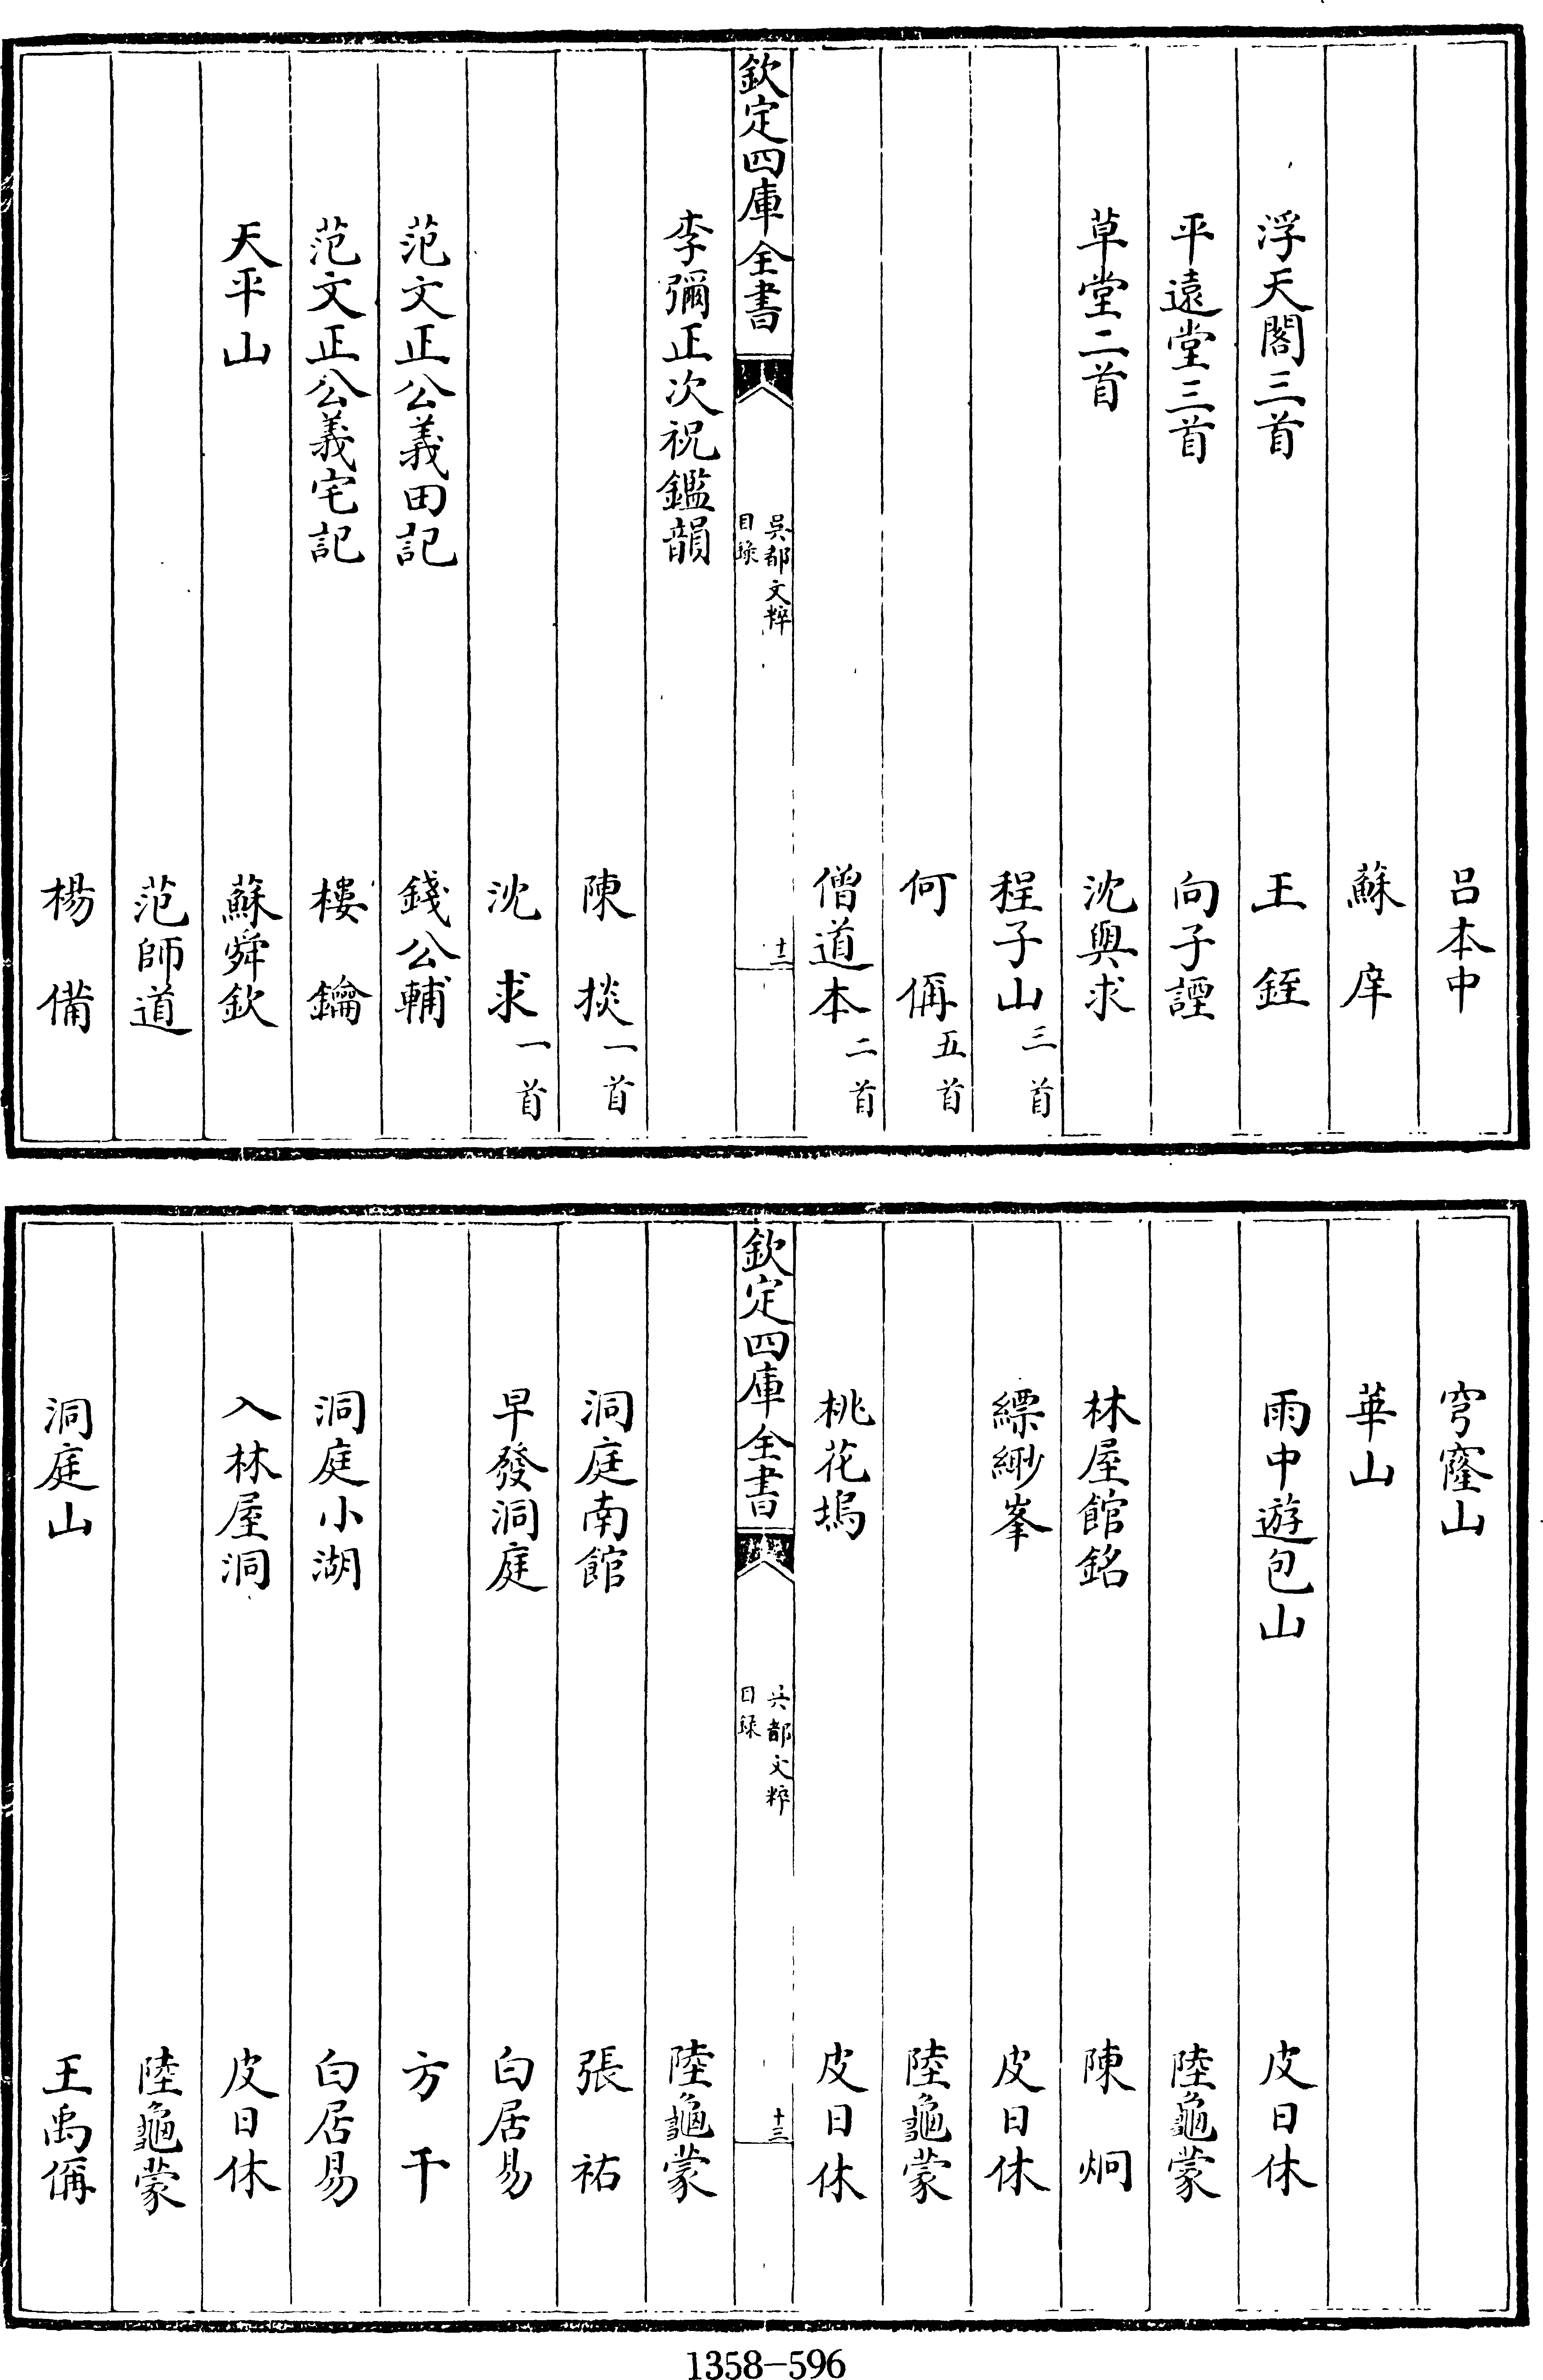 呂本中
蘇庠
浮天閣三首 王銍
平遠堂三首 向子諲
草堂二首 沈與求
程子山三首
何偁五首
僧道本二首
欽定四庫全書 吳都文粹目錄 十二
李彌正次祝鑑韻
陳掞一首
沈求一首
范文正公義田記 錢公輔
范文正公義宅記 樓鑰
天平山 蘇舜欽
范師道
楊備
穹窿山
華山
雨中遊包山 皮日休
陸龜蒙
林屋館銘 陳炯
縹緲峯 皮日休
陸龜蒙
桃花塢 皮日休
欽定四庫全書 吳都文粹目錄 十三
陸龜蒙
洞庭南館 張祐
早發洞庭 白居易
方干
洞庭小湖 白居易
入林屋洞 皮日休
陸龜蒙
洞庭山 王禹偁
1358-596